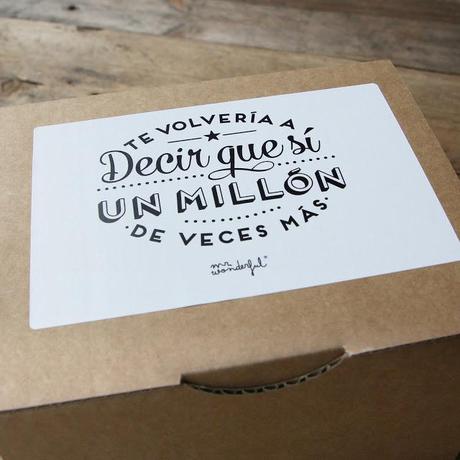 TE VOLVERÍA A
Decir que sí
UN MILLÓN
DE VECES MÁS
mr.
wonderful®